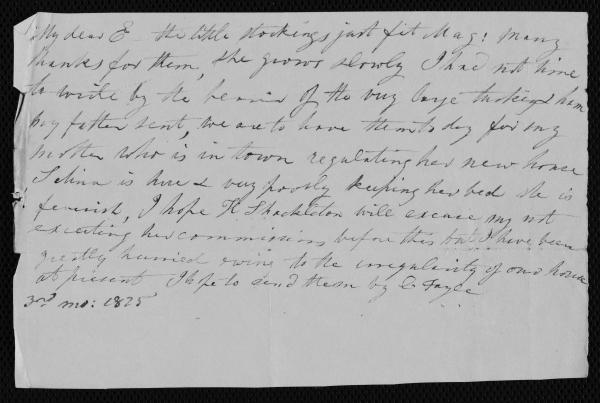 My dear E the little stockings just fit Mag: many
thanks for them, she grows slowly I had not time
to write by the bearer of the very large turkey & ham
my father sent, we are to have them to day for my
mother who is in town regulating her new house
Selina is here & very poorly keeping her bed she is
feverish, I hope H. Shackleton will excuse my not
executing her commissions before this but I have been
greatly hurried owing to the irregularity of our house
at present I hope to send them by C Fayle
3rd mo: 1825